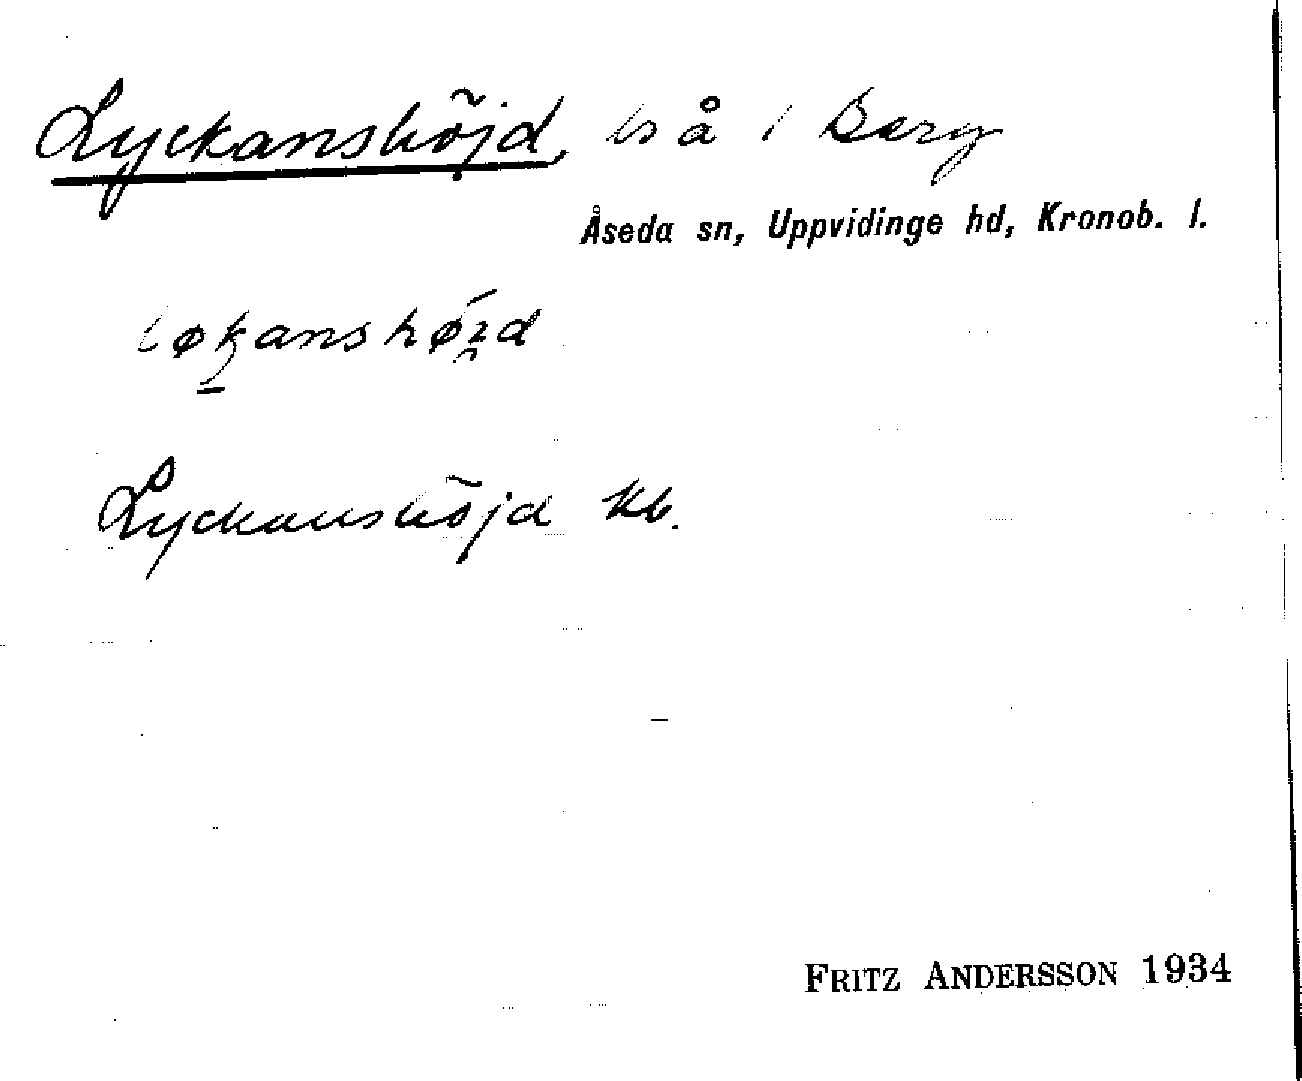 Lyckanshöjd, ls å i Berg
Åseda sn, Uppvidinge hd, Kronob. l.
Lyckanshöjd kb.
FRITZ ANDERSSON 1934